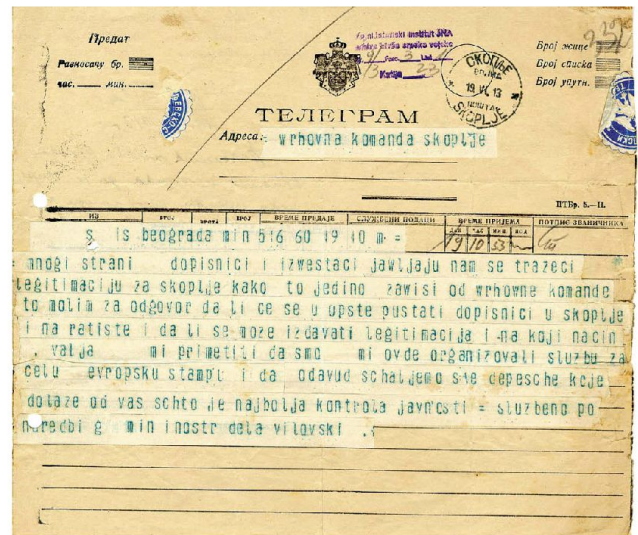 Предат
Разносачу бр.
час. мин.
Vojnoistoriski institut JNA
СКОПЉЕ
19.VI.13
SKOPLJE
Број жице
Број списка
Број упутн.
ТЕЛЕГРАМ
Адреса: wrhovna komanda skoplje
ПТБр. 5.—II.
ИЗ БРОЈ ВРСТА БРОЈ ВРЕМЕ ПРЕДАЈЕ СЛУЖБЕНИ ПОДАЦИ ВРЕМЕ ПРИЈЕМА ПОТПИС ЗВАНИЧНИКА
ДАН ЧАС МИН.
19 10 53
s is beograda min 516 60 19 10 m =
mnogi strani dopisnici i izwestaci jawljaju nam se trazeci
legitimaciju za skoplje kako to jedino zawisi od wrhowne komande
to molim za odgovor da li ce se u opste pustati dopisnici u skoplje
i na ratiste i da li se moze izdavati legitimacija i na koji nacin
. valja mi primetiti da smo mi ovde organizovali sluzbu za
celu evropsku stampu i da odavud schaljemo sve depesche koje
dolaze od vas schto je najbolja kontrola javnosti = sluzbeno po
naredbi g min inostr dela vilovski .